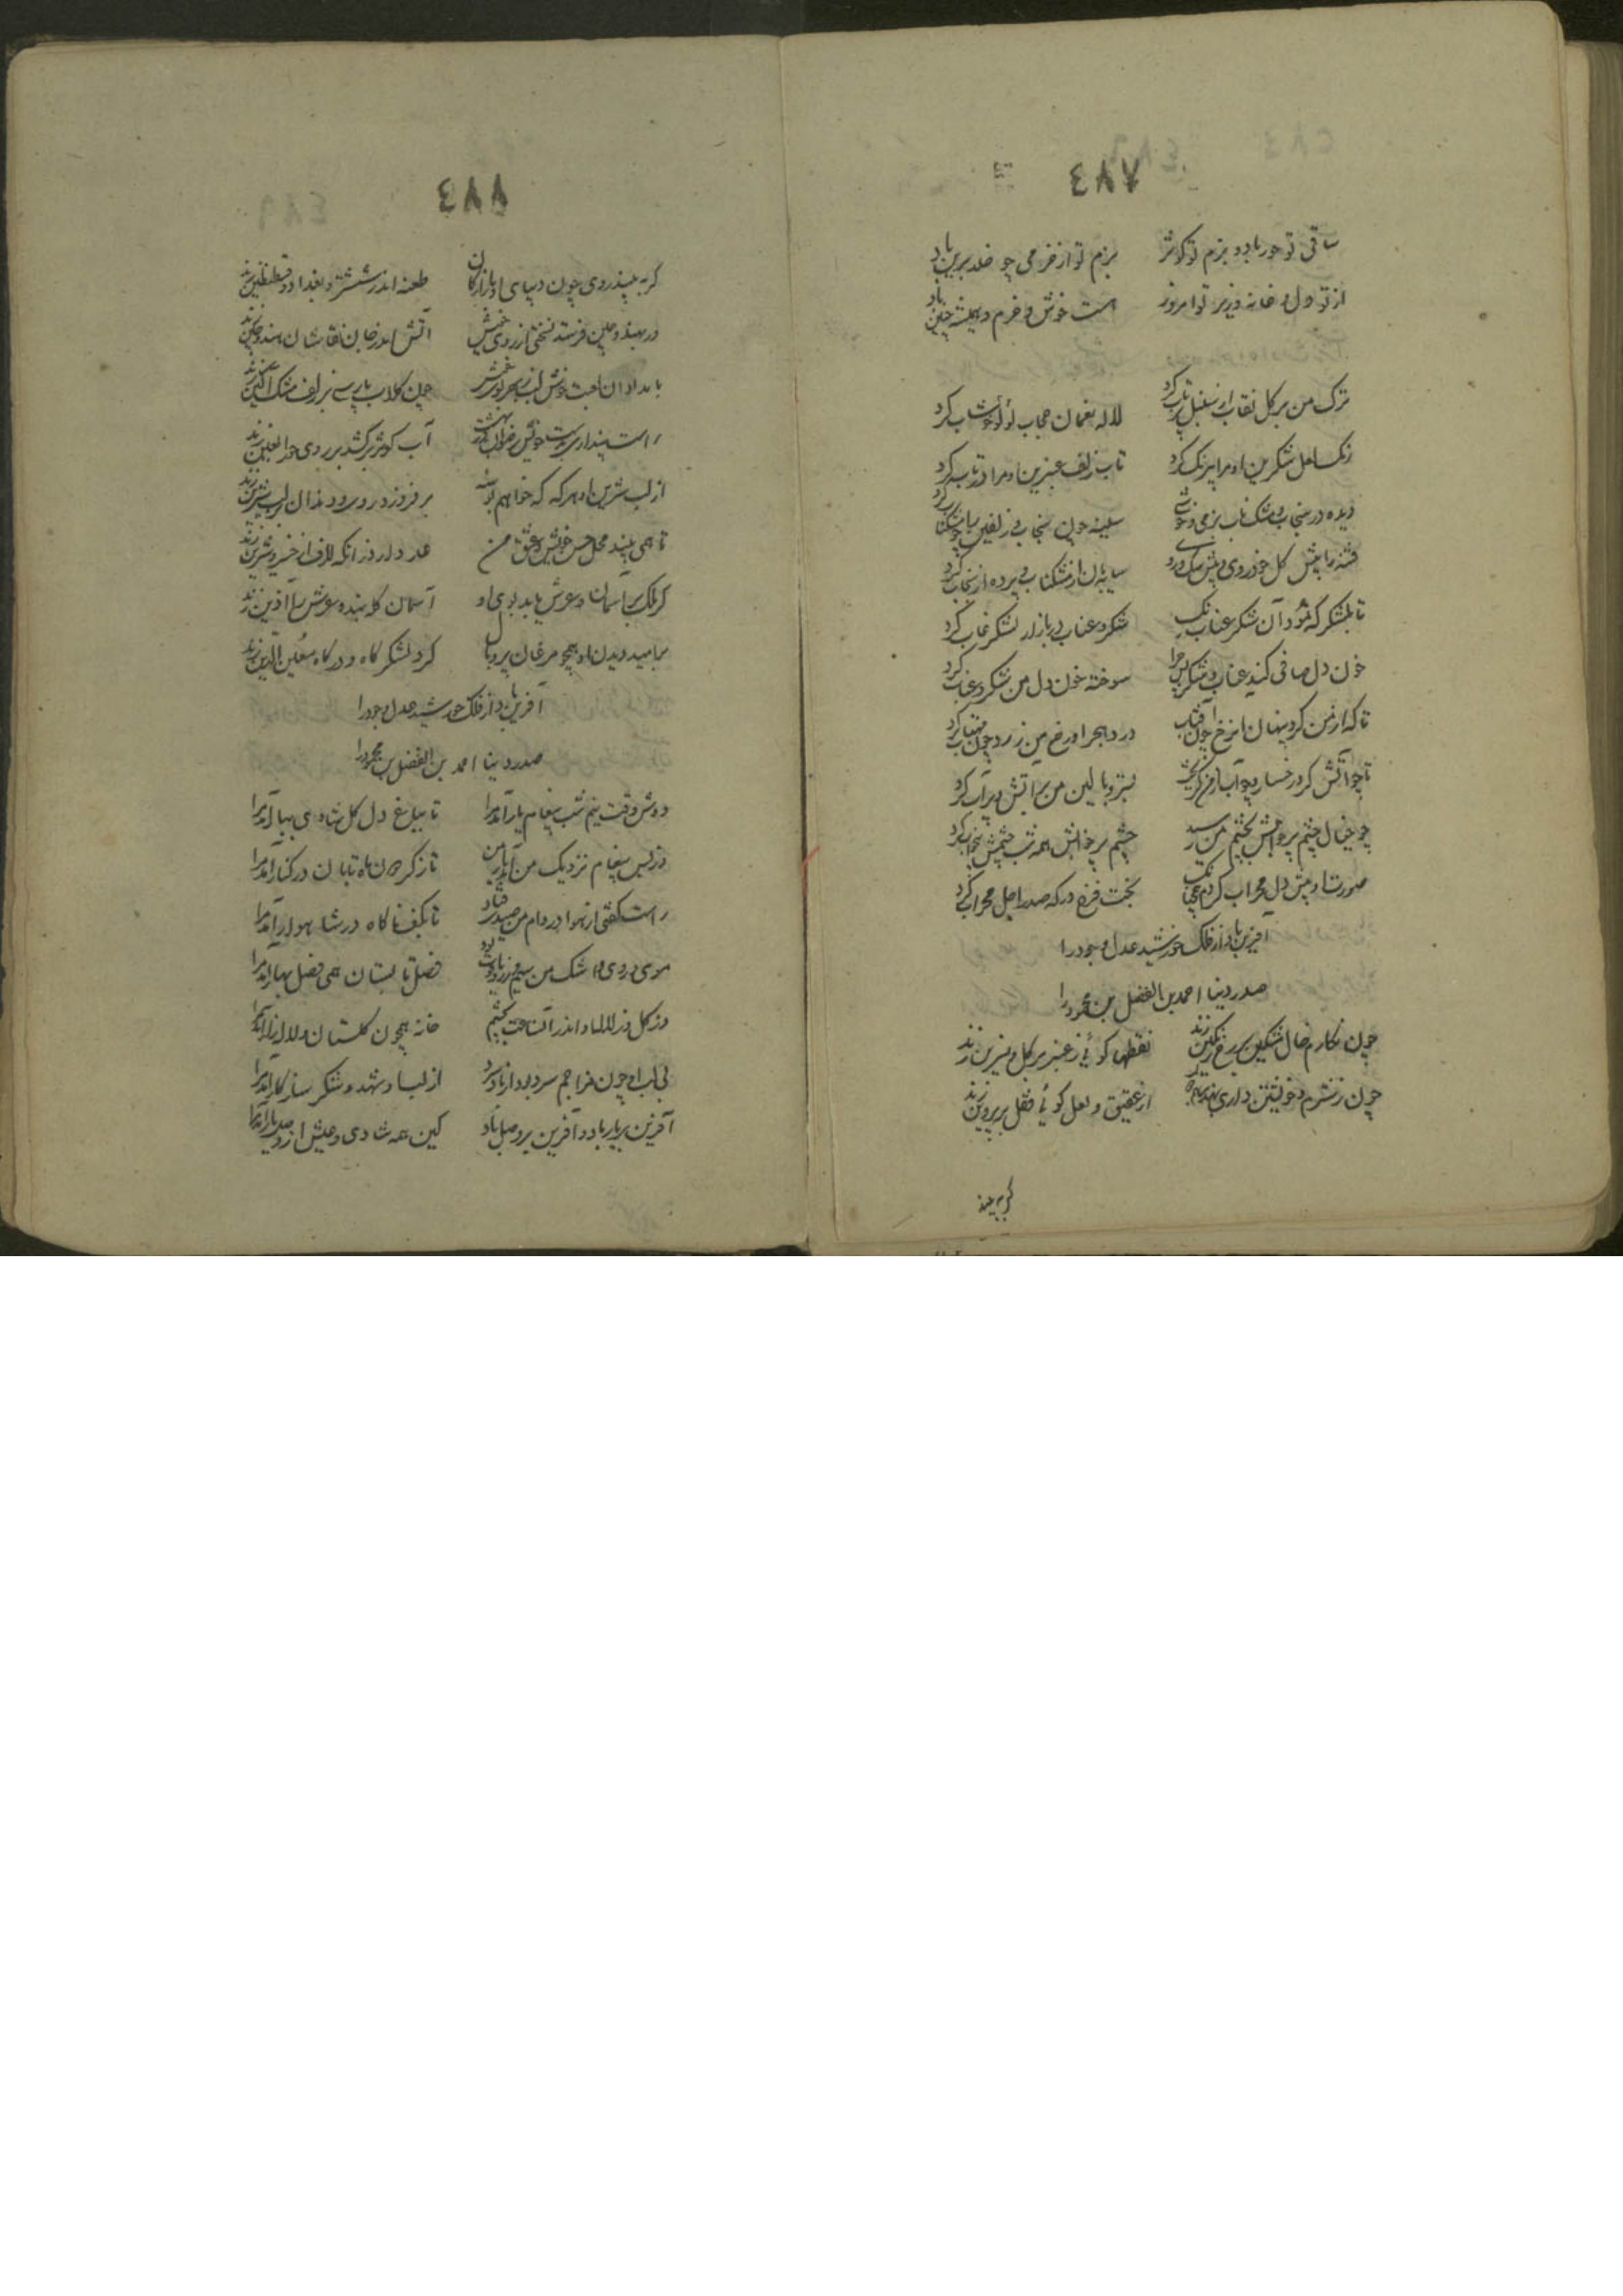 ٤٨٧
ساقی تو حور باد و بزم تو کوثر بزم تو از خرمی چو خلد برین باد
از تو دل و خانه وزیر تو امروز هست خوش و خرم و همیشه چنین باد
ترک من بر کل نقاب از سنبل پرتاب کرد لاله نعمان حجاب لؤلؤ خوشاب کرد
رنک لعل شکرین او مرا بیرنک کرد تاب زلف عنبرین او مرا در تاب کرد
دیده در سنجاب و مشک ناب نرمی و خوشی
فتنه را پیش کل خودروی سایه بان از مشک ناب و پرده از سنجاب کرد
تا بلشکرکه آن شکر عناب رنک شکر و عناب در بازار لشکر کرد
خون دل صافی کنید عناب و شکر پس چرا سوخته خون دل من شکر و عناب کرد
تا که از من کرد پنهان آن رخ چون آفتاب درد هجر او رخ من زرد چون مهتاب کرد
تا چو آتش کرد رخسار و چو آب از من بستر و بالین من پر آتش و پر آب کرد
چو خیال چشم پر خوابش بچشم من رسید چشم پر خوابش همه شب چشم بیخواب کرد
صورت او پیش دل محراب کردم بخت فرخ درکه صدر اجل محراب کرد
آفرین باد از فلک خورشید عدل و جود را
صدر دنیا احمد بن الفضل بن محمود را
چون نکارم خال مشکین بر رخ رنکین زند نقطها کوئی ز عنبر بر کل و نسرین زند
چون ز شرم و خویشتن داری از عقیق و لعل کوئی قفل بر پروین زند
کر به بیند
٤٨٨
کر به بیند روی چون دیبای او بازارکان طعنه اندر ششتر و بغداد و قسطنطین زند
ور بهند و چین فرستد نسختی از روی خویش آتش اندر جان نقاشان هند و چین زند
بامدادان چون کلاب پارسی بر زلف مشک آکین زند
راست پنداری آب کوثر برکشد بر روی حور العین زند
از لب شیرین او هر که که خواهم بوسه بر فروزد روی و دندان بر لب شیرین زند
تا همی بیند محل حسن خویش و عشق من عار دارد زانکه لاف از خسرو و شیرین زند
کر ملک بر آسمان و عرش یابد بوی او آسمان کله بندد عرش را آذین زند
بر امید دیدن او همچو مرغان پر و بال کرد لشکرکاه و درکاه معین الدین زند
آفرین باد از فلک خورشید عدل و جود را
صدر دنیا احمد بن الفضل بن محمود را
دوش وقت نیم شب پیغام یار آمد مرا تا بباغ دل کل شادی ببار آمد مرا
وز پس پیغام نزدیک من آمد یار من ماه تابان در کنار آمد مرا
راست کفتی از هوا در دام من صید اوفتاد تا بکف ناکاه در شاهوار آمد مرا
موی و روی و اشک من فصل تابستان همی فصل بهار آمد مرا
وز کل و ز لاله او اندر آن ساعت بچشم خانه همچون کلستان و لاله زار آمد مرا
بی لب او چون مزاجم سرد بود از باد سرد از لب او شهد و شکر سازکار آمد مرا
آفرین بر یار باد و آفرین بر وصل باد کین همه شادی و عیش از وصل یار آمد مرا